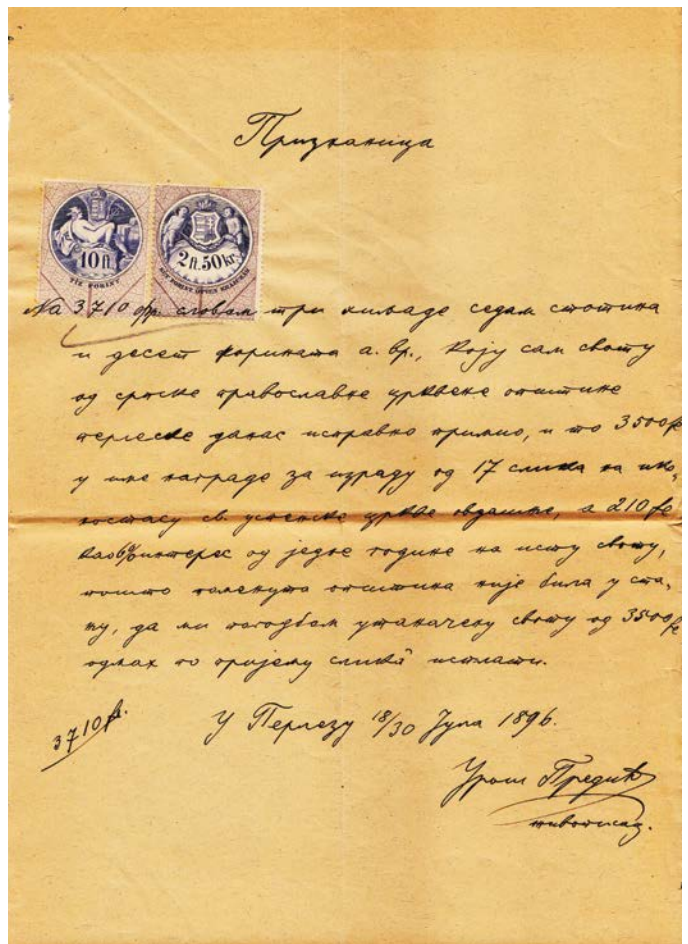 Признаница
10 ft.
TIZ FORINT
2 ft. 50 kr.
KÉT FORINT ÖTVEN KRAJCZÁR
На 3710 фр. словом три хиљаде седам стотина
и десет форината а. вр., коју сам своту
од српске православне црквене општине
перлеске данас исправно примио, и то 3500 fr
у име награде за израду од 17 слика на ико,
ностасу св. успенске цркве овдашње, а 210 fr
као 6% интерес од једне године на исту своту,
пошто поменута општина није била у ста,
њу, да ми погодбом утаначену своту од 3500 fr
одмах по пријему сликâ исплати.
3710 fr.
У Перлезу 18/30 Јула 1896.
Урош Предић
живописац.